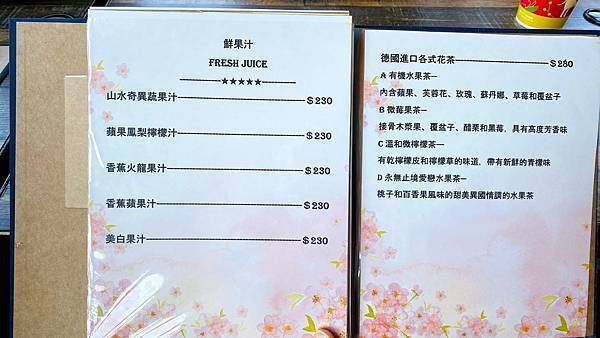 鮮果汁
FRESH JUICE
★★★★★
山水奇異蔬果汁 $230
蘋果鳳梨檸檬汁 $230
香蕉火龍果汁 $230
香蕉蘋果汁 $230
美白果汁 $230
德國進口各式花茶 $280
A 有機水果茶─
內含蘋果、芙蓉花、玫瑰、蘇丹娜、草莓和覆盆子
B 微莓果茶─
接骨木漿果、覆盆子、醋栗和黑莓，具有高度芳香味
C 溫和微檸檬茶─
有乾檸檬皮和檸檬草的味道，帶有新鮮的青檬味
D 永無止境愛戀水果茶─
桃子和百香果風味的甜美異國情調的水果茶